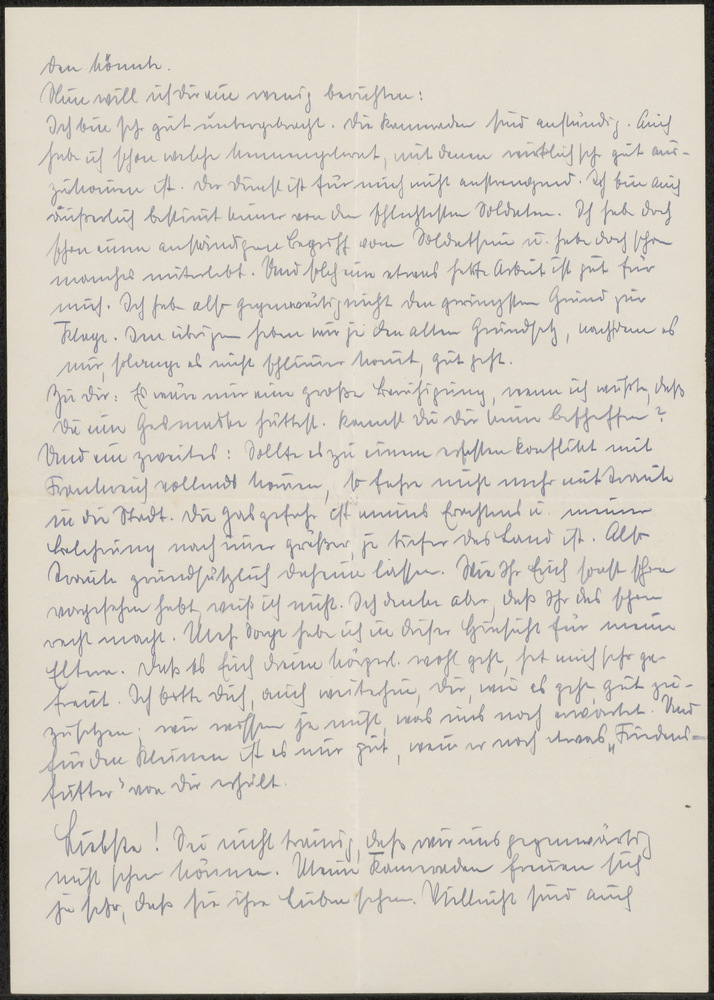 den könnte.
Nun will ich Dir ein wenig berichten:
Ich bin sehr gut untergebracht. Die Kameraden sind anständig. Auch
habe ich schon welche kennengelernt, mit denen wirklich sehr gut aus-
zukommen ist. Der Dienst ist für mich nicht anstrengend. Ich bin auch
äußerlich bestimmt keiner von den schlechtesten Soldaten. Ich habe doch
schon einen anständigen Begriff vom Soldatsein u. habe doch schon
manches miterlebt. Und solch ein etwas feste Arbeit ist gut für
mich. Ich habe also gegenwärtig nicht den geringsten Grund zur
Klage. Im übrigen haben wir ja den alten Grundsatz, nachdem es
mir, solange es nicht schlimmer kommt, gut geht.
Zu Dir: Es wäre mir eine große Beruhigung, wenn ich wüßte, daß
Du eine Gasmaske hättest. Kannst Du Dir keine beschaffen?
Und ein zweites: Sollte es zu einem ersten Konflikt mit
Frankreich vollends kommen, so fahre nicht mehr mit Traute
in die Stadt. Die Gasgefahr ist meines Erachtens u. meiner
Belehrung nach immer größer, je tiefer das Land ist. Also
Traute grundsätzlich daheim lassen. Wie Ihr Euch sonst schon
vorgesehen habt, weiß ich nicht. Ich denke aber, daß Ihr das schon
recht macht. Mehr Sorge habe ich in dieser Hinsicht für meine
Eltern. Daß es Euch Dreien körperl. wohl geht, hat mich sehr ge-
freut. Ich bitte Dich, auch weiterhin, Dir, wie es geht, gut zu-
zusetzen; wir wissen ja nicht, was uns noch erwartet. Und
für den Kleinen ist es nur gut, wenn er noch etwas „Friedens-
futter" von Dir erhält.
Liebste! Sei nicht traurig, daß wir uns gegenwärtig
nicht sehen können. Meine Kameraden freuen sich
ja sehr, daß sie ihre Lieben sehen. Vielleicht sind auch